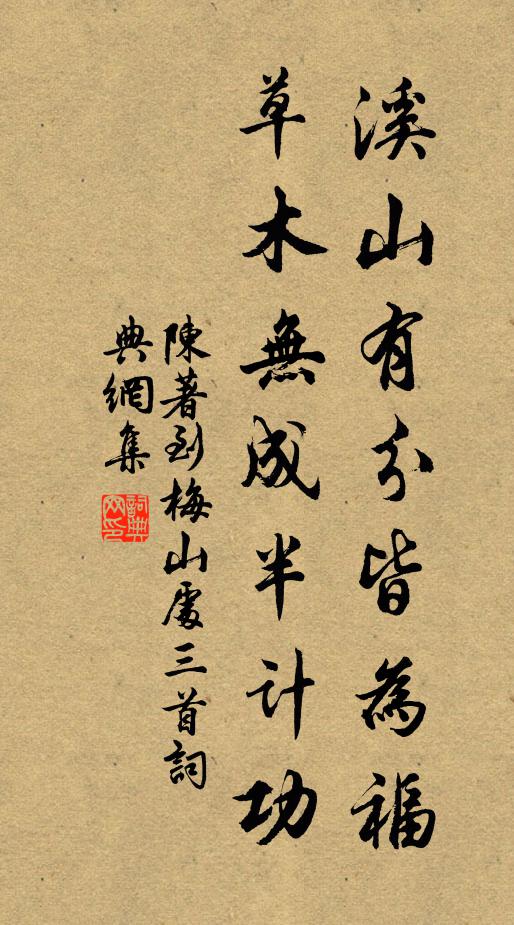 溪山有分皆為福
草木無成半計功
陳著到梅山處三首詞
典網集
詞典網印